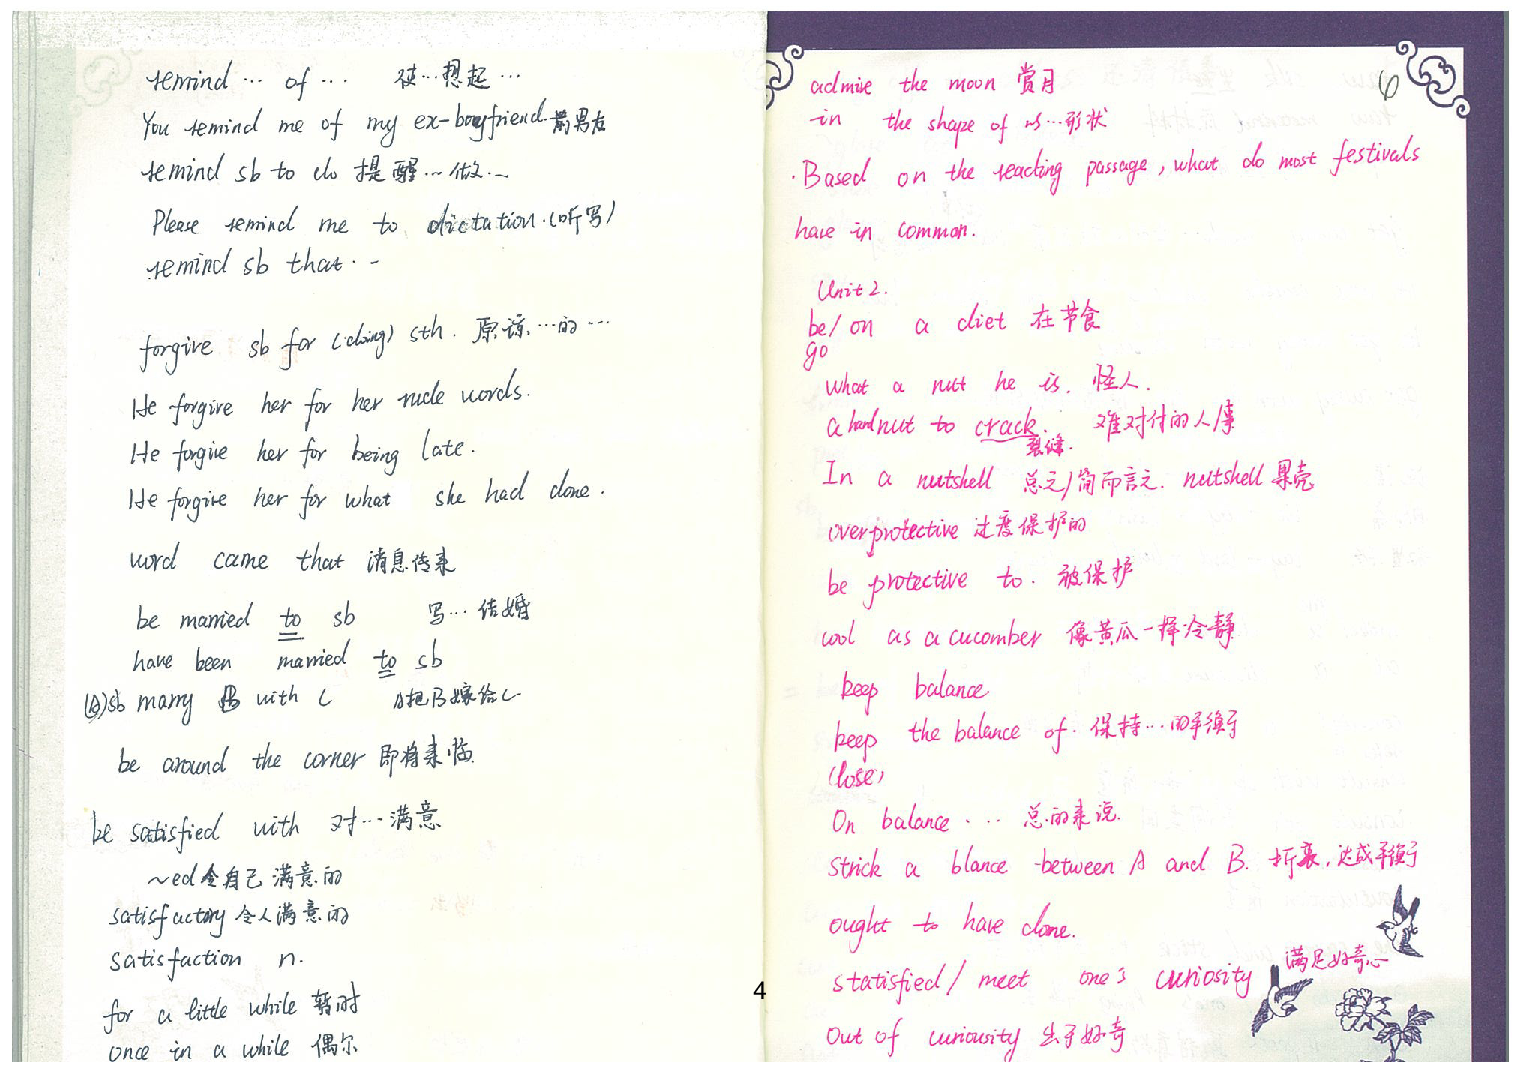 remind … of … 使…想起…
You remind me of my ex-boyfriend. 前男友
remind sb to do 提醒…做…
Please remind me to dictation.(听写)
remind sb that…
forgive sb for (doing) sth. 原谅…的…
He forgive her for her rude words.
He forgive her for being late.
He forgive her for what she had done.
word came that 消息传来
be married to sb 写…结婚
have been married to sb
(A)sb marry B with C A把B嫁给C
be around the corner 即将来临
be satisfied with 对…满意
~ed 令自己满意的
satisfactory 令人满意的
satisfaction n.
for a little while 暂时
once in a while 偶尔
4
6
admire the moon 赏月
in the shape of 以…形状
·Based on the reading passage, what do most festivals
have in common.
Unit 2.
be/ on a diet 在节食
go
what a nut he is. 怪人.
a hard nut to crack. 难对付的人/事
裂缝.
In a nutshell 总之/简而言之. nutshell 果壳
overprotective 过度保护的
be protective to. 被保护
cool as a cucomber 像黄瓜一样冷静
keep balance
keep the balance of. 保持…的平衡
(lose)
On balance … 总的来说.
strick a blance between A and B. 折衷,达成平衡
ought to have done.
statisfied/ meet one's curiosity 满足好奇心
Out of curiousity 出于好奇